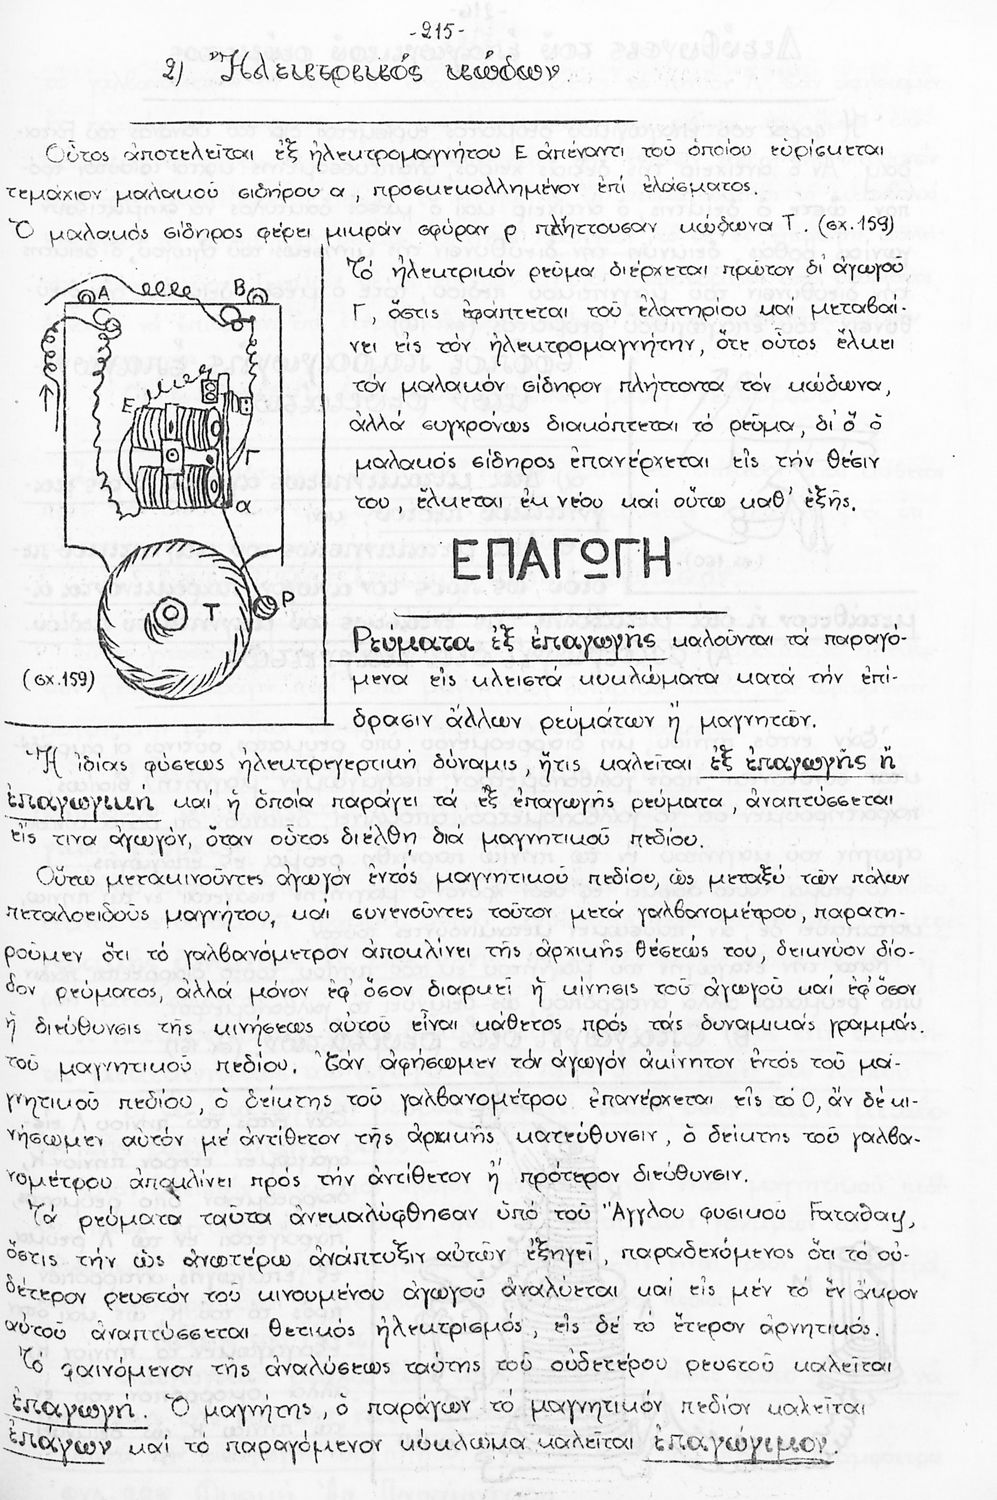 -215-
2) Ἠλεκτρικός κώδων.
Οὗτος ἀποτελεῖται ἐξ ἠλεκτρομαγνήτου Ε ἀπέναντι τοῦ ὁποίου εὑρίσκεται
τεμάχιον μαλακοῦ σιδήρου α, προσκεκολλημένον ἐπί ἐλάσματος.
Ὁ μαλακός σίδηρος φέρει μικράν σφύραν ρ πλήττουσαν κώδωνα Τ. (σχ.159)
Τό ἠλεκτρικόν ρεῦμα διέρχεται πρῶτον δι' ἀγωγοῦ
Γ, ὅστις ἐφάπτεται τοῦ ἐλατηρίου καί μεταβαί-
νει εἰς τόν ἠλεκτρομαγνήτην, ὅτε οὗτος ἕλκει
τόν μαλακόν σίδηρον πλήττοντα τόν κώδωνα,
ἀλλά συγχρόνως διακόπτεται τό ρεῦμα, δι' ὅ ὁ
μαλακός σίδηρος ἐπανέρχεται εἰς τήν θέσιν
του, ἕλκεται ἐκ νέου καί οὕτω καθ' ἑξῆς.
Α
Β
Ε
Γ
α
Τ
Ρ
(σχ.159)
ΕΠΑΓΩΓΗ
Ρεύματα ἐξ ἐπαγωγῆς καλοῦνται τά παραγό-
μενα εἰς κλειστά κυκλώματα κατά τήν ἐπί-
δρασιν ἄλλων ρευμάτων ἤ μαγνητῶν.
Ἡ ἰδίας φύσεως ἠλεκτρεγερτική δύναμις, ἥτις καλεῖται ἐξ ἐπαγωγῆς ἤ
ἐπαγωγική καί ἡ ὁποία παράγει τά ἐξ ἐπαγωγῆς ρεύματα, ἀναπτύσσεται
εἰς τινα ἀγωγόν, ὅταν οὗτος διέλθῃ διά μαγνητικοῦ πεδίου.
Οὕτω μετακινοῦντες ἀγωγόν ἐντός μαγνητικοῦ πεδίου, ὡς μεταξύ τῶν πόλων
πεταλοειδοῦς μαγνήτου, καί συνενοῦντες τοῦτον μετά γαλβανομέτρου, παρατη-
ροῦμεν ὅτι τό γαλβανόμετρον ἀποκλίνει τῆς ἀρχικῆς θέσεώς του, δεικνύον δίο-
δον ρεύματος, ἀλλά μόνον ἐφ' ὅσον διαρκεῖ ἡ κίνησις τοῦ ἀγωγοῦ καί ἐφ' ὅσον
ἡ διεύθυνσις τῆς κινήσεως αὐτοῦ εἶναι κάθετος πρός τάς δυναμικάς γραμμάς.
τοῦ μαγνητικοῦ πεδίου. Ἐάν ἀφήσωμεν τόν ἀγωγόν ἀκίνητον ἐντός τοῦ μα-
γνητικοῦ πεδίου, ὁ δείκτης τοῦ γαλβανομέτρου ἐπανέρχεται εἰς τό 0, ἄν δέ κι-
νήσωμεν αὐτόν μέ ἀντίθετον τῆς ἀρχικῆς κατεύθυνσιν, ὁ δείκτης τοῦ γαλβα-
νομέτρου ἀποκλίνει πρός τήν ἀντίθετον ἤ πρότερον διεύθυνσιν.
Τά ρεύματα ταῦτα ἀνεκαλύφθησαν ὑπό τοῦ Ἄγγλου φυσικοῦ Faraday,
ὅστις τήν ὡς ἀνωτέρω ἀνάπτυξιν αὐτῶν ἐξηγεῖ, παραδεχόμενος ὅτι τό οὐ-
δέτερον ρευστόν τοῦ κινουμένου ἀγωγοῦ ἀναλύεται καί εἰς μέν τό ἕν ἄκρον
αὐτοῦ ἀναπτύσσεται θετικός ἠλεκτρισμός, εἰς δέ τό ἕτερον ἀρνητικός.
Τό φαινόμενον τῆς ἀναλύσεως ταύτης τοῦ οὐδετέρου ρευστοῦ καλεῖται
ἐπαγωγή. Ὁ μαγνήτης, ὁ παράγων τό μαγνητικόν πεδίον καλεῖται
ἐπάγων καί τό παραγόμενον κύκλωμα καλεῖται ἐπαγώγιμον.